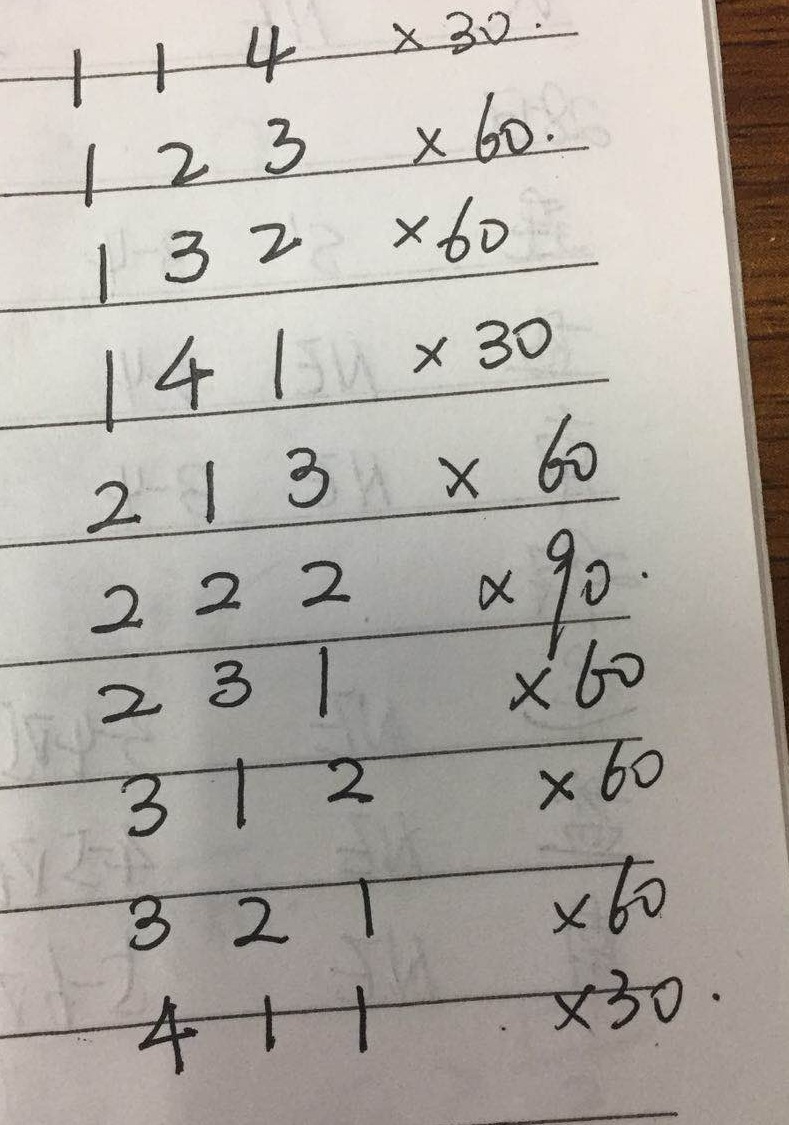 1 1 4 × 30.
1 2 3 × 60.
1 3 2 × 60
1 4 1 × 30
2 1 3 × 60
2 2 2 × 90.
2 3 1 × 60
3 1 2 × 60
3 2 1 × 60
4 1 1 × 30.